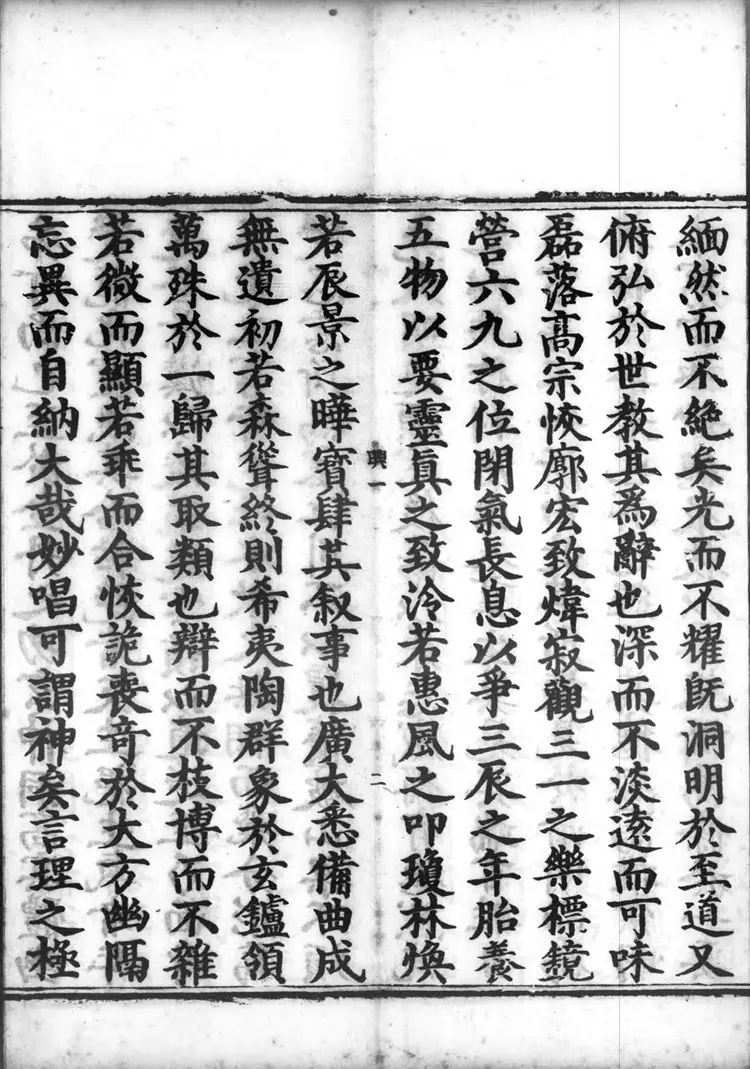 緬然而不絶矣光而不耀旣洞明於至道又
俯弘於世教其爲辭也深而不淡遠而可味
磊落高宗恢廓宏致煒寂觀三一之樂標鏡
營六九之位閉氣長息以爭三辰之年胎養
五物以要靈眞之致泠若惠風之叩瓊林煥
興一
二
若辰景之曄寳肆其叙事也廣大悉備曲成
無遺初若森聳終則希夷陶群象於玄鑪領
萬殊於一歸其取類也辯而不枝博而不雜
若微而顯若乖而合恢詭喪竒於大方幽隔
忘異而自納大哉妙唱可謂神矣言理之極